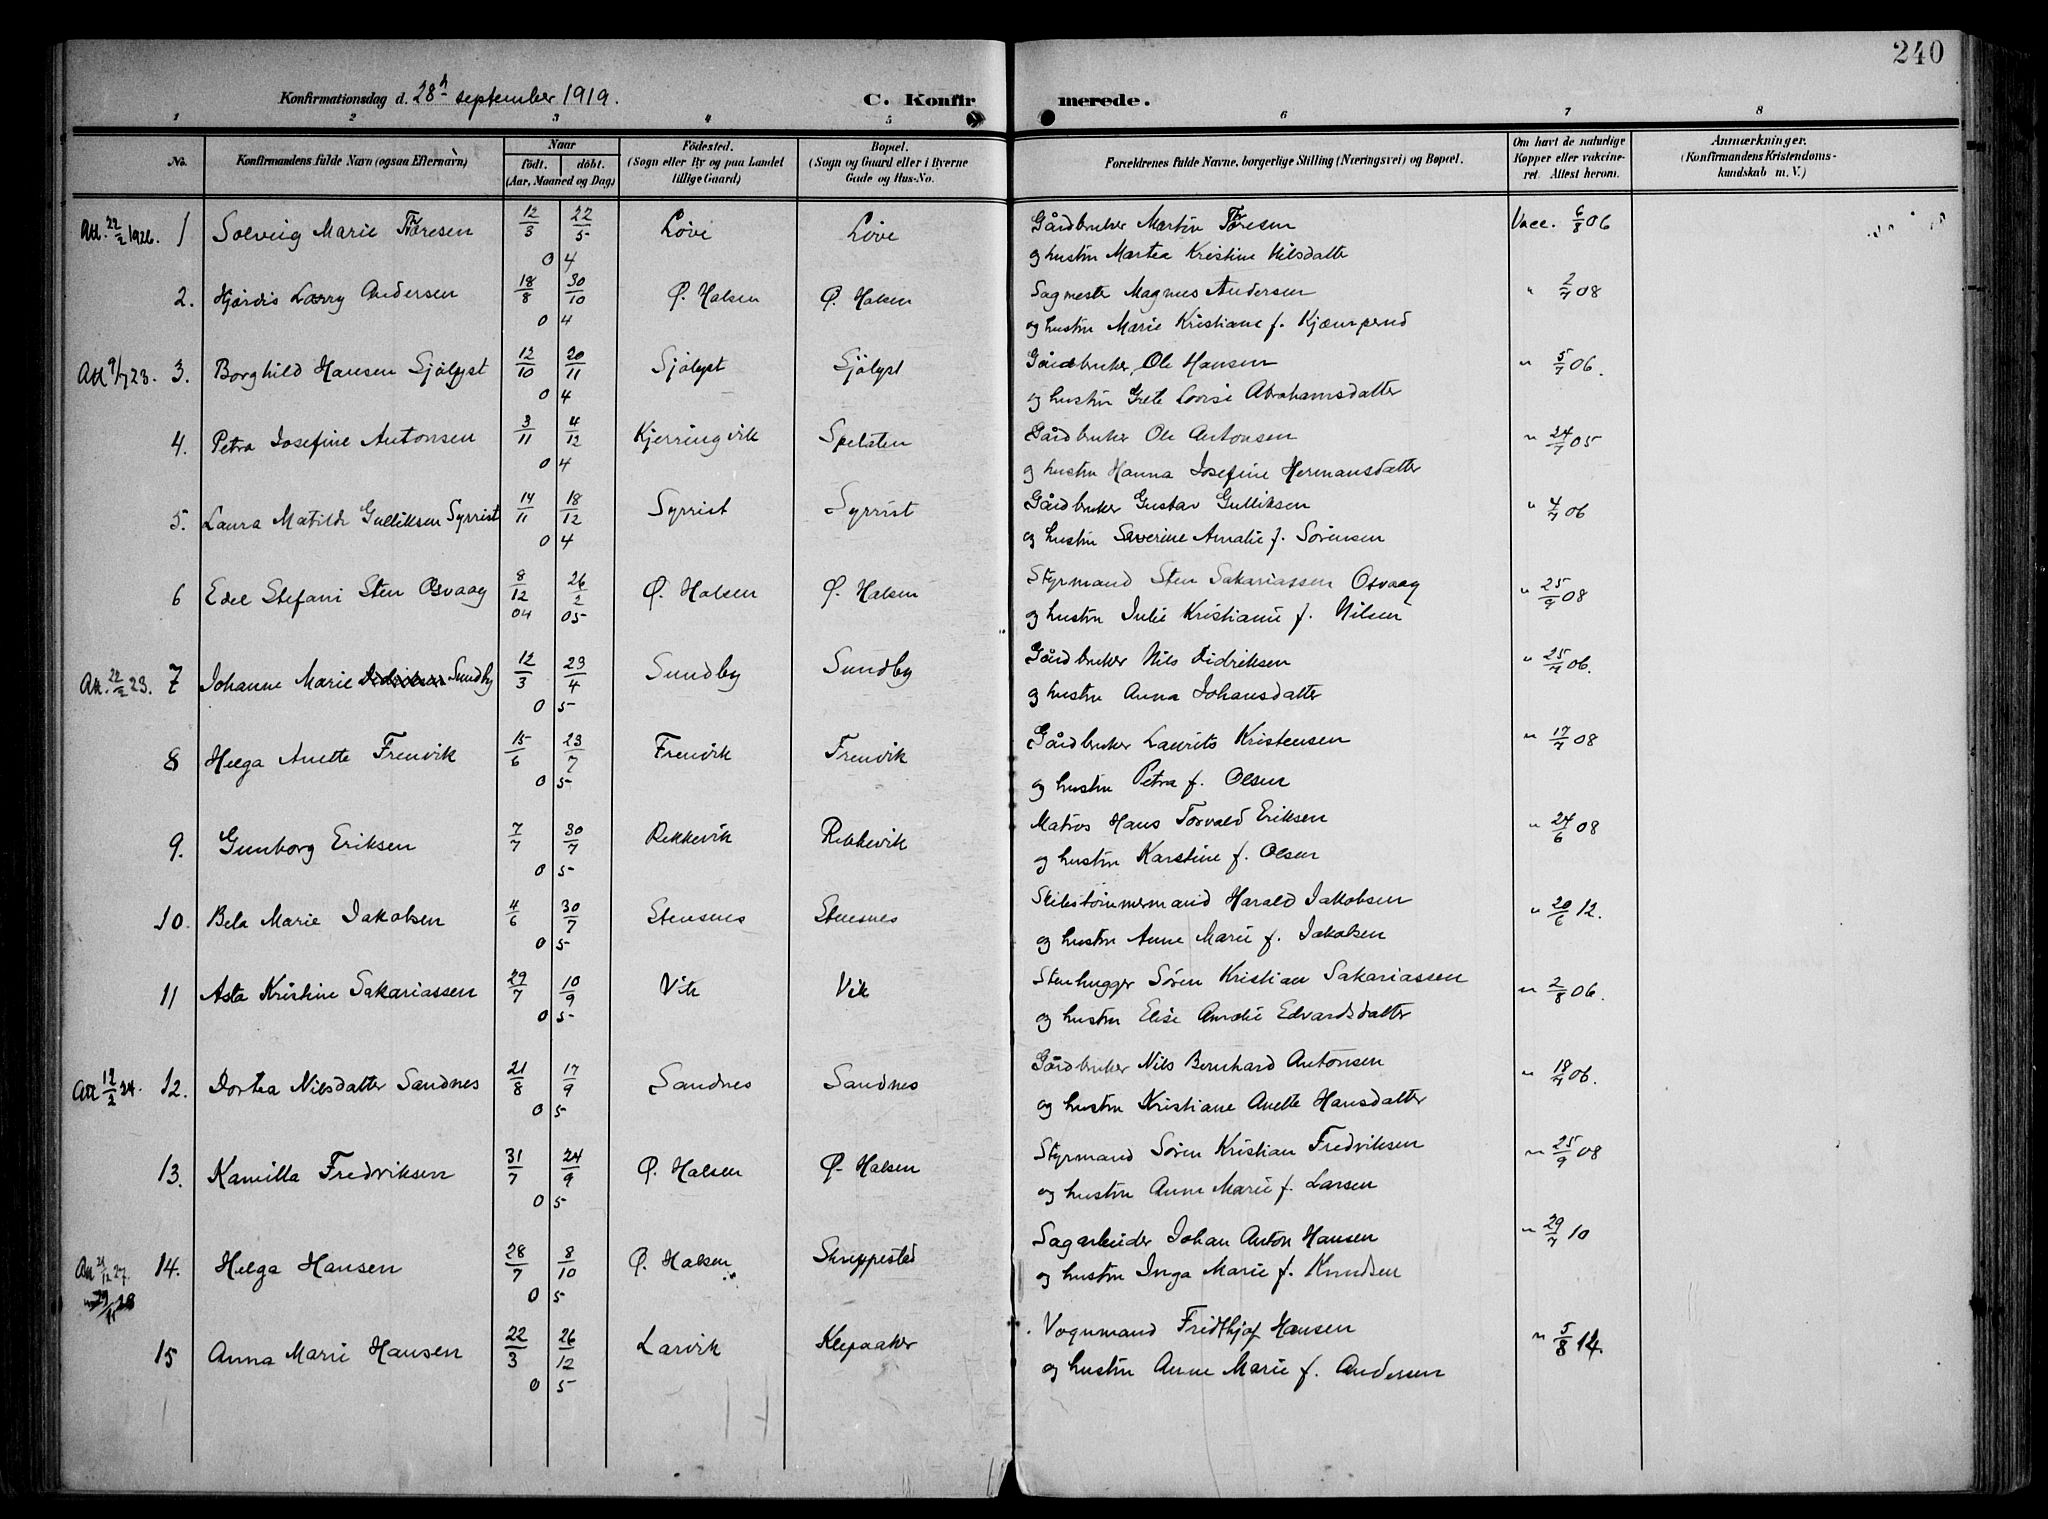 240
Konfirmationsdag d. 28de september 1919. C. Konfirmerede.
1 2 3 4 5 6 7 8
No. Konfirmandens fulde Navn (ogsaa Efternavn) Naar født. døbt. (Aar, Maaned og Dag) Fødested. (Sogn eller By og paa Landet tillige Gaard) Bopæl. (Sogn og Gaard eller i Byerne Gade og Hus-No. Forældrenes fulde Navne, borgerlige Stilling (Næringsvei) og Bopæl. Om havt de naturlige Kopper eller vakcineret. Attest herom. Anmærkninger. (Konfirmandens Kristendomskundskab m. V.)
Att. 22/2 1926. 1 Solveig Marie Thoresen 12/3 22/5 Løve Løve Gårdbruker Martin Thoresen Vacc. 6/8 06
04 og hustru Martea Kristine Nilsdatter
2. Hjørdis Larry Andersen 18/8 30/10 Ø. Halsen Ø. Halsen Sagmester Magnus Andersen " 2/7 08
04 og hustru Marie Kristiane f. Kjæmperud
Att 9/7 23. 3. Borghild Hansen Sjølyst 12/10 20/11 Sjølyst Sjölyst Gårdbruker, Ole Hansen " 5/7 06.
04 og hustru Grete Lovise Abrahamsdatter
4. Petra Josefine Antonsen 3/11 4/12 Kjerringvik Spelsten Gårdbruker Ole Antonsen " 24/7 05
04 og hustru Hanna Josefine Hermansdatter
5. Laura Matilde Gulliksen Syrrist 14/11 18/12 Syrrist Syrrist Gårdbruker Gustav Gulliksen " 4/7 06
04 og hustru Severine Amalie f. Sørensen
6 Edel Stefani Sten Osvaag 8/12 04 26/2 05 Ø. Halsen Ø. Halsen Styrmand Sten Sakariassen Osvaag " 25/9 08
og hustru Julie Kristiane f. Nilsen
Att. 22/2 23. 7 Johanne Marie Didriksen Sundby 12/3 23/4 Sundby Sundby Gårdbruker Nils Didriksen " 25/7 06.
05 og hustru Anna Johansdatter
8 Helga Anette Frenvik 15/6 23/7 Frenvik Frenvik Gårdbruker Laurits Kristensen " 17/7 08
05 og hustru Petra f. Olsen
9. Gunborg Eriksen 7/7 30/7 Rekkevik Rekkevik Matros Hans Torvald Eriksen " 24/6 08
05 og hustru Karstine f. Olsen
10. Bela Marie Jakobsen 4/6 30/7 Stensnes Stensnes Skibstømmermand Harald Jakobsen " 20/6 12.
05 og hustru Anne Marie f. Jakobsen
11 Asta Kristine Sakariassen 29/7 10/9 Vik Vik Stenhugger Søren Kristian Sakariassen " 2/8 06.
05 og hustru Elise Amalie Edvardsdatter
Att 12/2 24. 12. Dortea Nilsdatter Sandnes 21/8 17/9 Sandnes Sandnes Gårdbruker Nils Bernhard Antonsen " 18/7 06.
05 og hustru Kristiane Anette Hansdatter
13. Kamilla Fredriksen 31/7 24/9 Ø. Halsen Ø. Halsen Styrmand Søren Kristian Fredriksen " 25/9 08
05 og hustru Anne Marie f. Larsen
Att 21/12 27. 14. Helga Hansen 28/7 8/10 Ø. Halsen Skreppestad Sagarbeider Johan Anton Hansen " 29/7 10
" 29/11 28 05 og hustru Inga Marie f. Knudsen
15 Anna Marie Hansen 22/3 26/12 Larvik Klepaaker Vognmand Fridthjof Hansen " 5/8 14.
05 og hustru Anne Marie f. Andersen